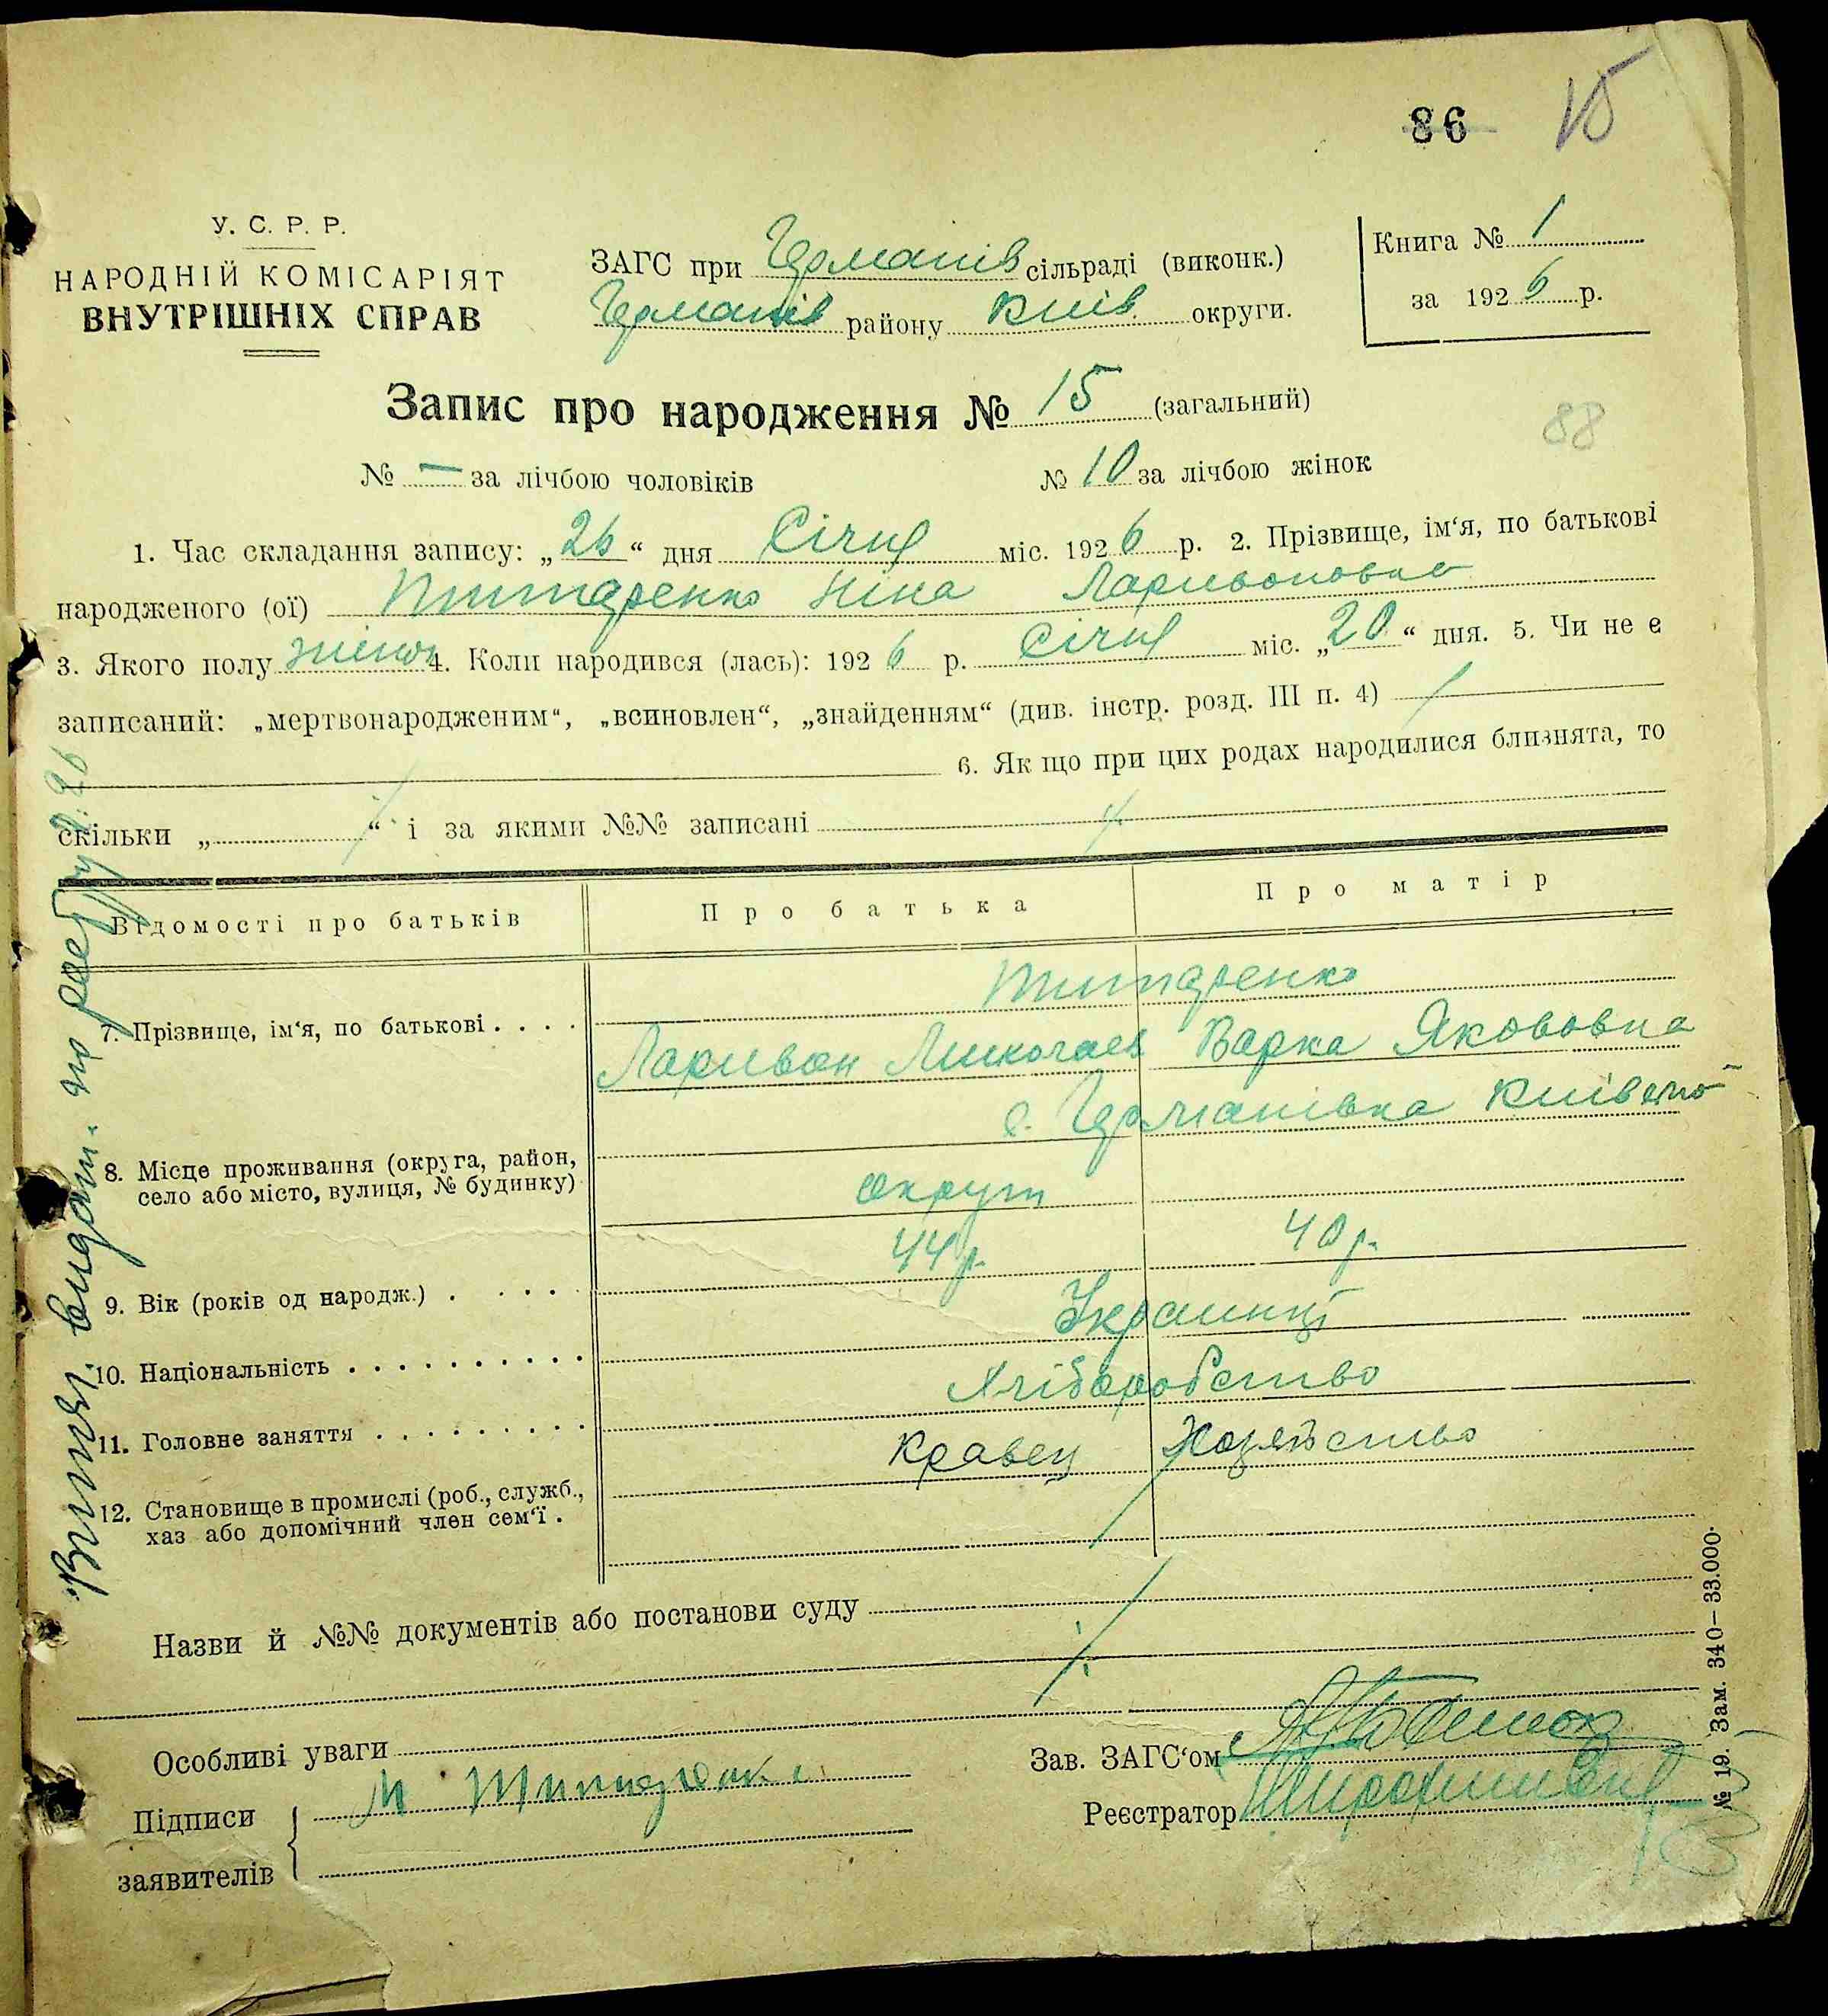 86 15
У. С. Р. Р.
НАРОДНІЙ КОМІСАРІЯТ
ВНУТРІШНІХ СПРАВ
ЗАГС при Германів сільраді (виконк.)
Германів району Київ. округи.
Книга № 1
за 1926 р.
Запис про народження № 15 (загальний)
88
№ — за лічбою чоловіків № 10 за лічбою жінок
1. Час складання запису: „26“ дня Січня міс. 1926 р. 2. Прізвище, ім‘я, по батькові
народженого (ої) Титаренко Ніна Ларивоновна
3. Якого полу жіноч 4. Коли народився (лась): 1926 р. Січня міс. „20“ дня. 5. Чи не є
записаний: „мертвонародженим“, „всиновлен“, „знайденням“ (див. інстр. розд. III п. 4)
6. Як що при цих родах народилися близнята, то
скільки „ “ і за якими №№ записані
Відомості про батьків Про батька Про матір
Титаренко
7. Прізвище, ім‘я, по батькові . . . .
Ларивон Миколаев Варка Якововна
с. Германівка Київської
8. Місце проживання (округа, район,
село або місто, вулиця, № будинку)
округи
44 р. 40 р.
9. Вік (років од народж.) . . . .
Українці
10. Національність . . . . . . . . . .
Хліборобство
11. Головне заняття . . . . . . . . .
Кравец Хозяйство
12. Становище в промислі (роб., служб.,
хаз або допомічний член сем‘ї .
Назви й №№ документів або постанови суду
Особливі уваги
Зав. ЗАГС‘ом
Підписи
заявителів
Реєстратор
№ 19. Зам. 340–33.000.